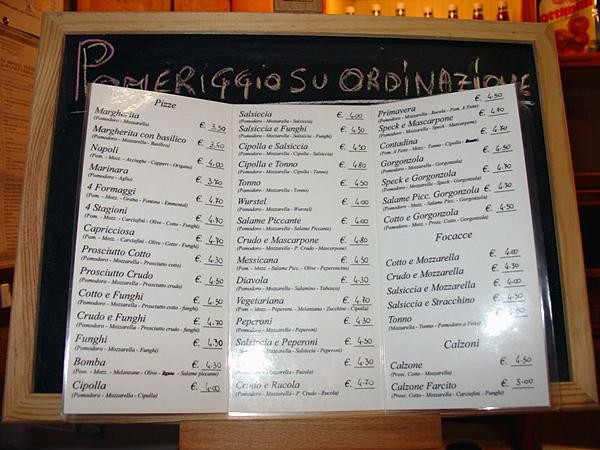 POMERIGGIO SU ORDINAZIONE
Pizze
Margherita € 3.50
(Pomodoro - Mozzarella)
Margherita con basilico € 3.60
(Pomodoro - Mozzarella - Basilico)
Napoli € 4.00
(Pom. - Mozz. - Acciughe - Capperi - Origano)
Marinara € 3.70
(Pomodoro - Aglio)
4 Formaggi € 4.70
(Pom. - Mozz. - Grana - Fontina - Emmental)
4 Stagioni € 4.70
(Pom. - Mozz. - Carciofini - Olive - Cotto - Funghi)
Capricciosa € 4.70
(Pom. - Mozz. - Carciofini - Olive - Cotto - Funghi)
Prosciutto Cotto € 4.30
(Pomodoro - Mozzarella - Prosciutto cotto)
Prosciutto Crudo € 4.50
(Pomodoro - Mozzarella - Prosciutto crudo)
Cotto e Funghi € 4.50
(Pomodoro - Mozzarella - Prosciutto cotto - funghi)
Crudo e Funghi € 4.70
(Pomodoro - Mozzarella - Prosciutto crudo - funghi)
Funghi € 4.30
(Pomodoro - Mozzarella - Funghi)
Bomba € 4.30
(Pom. - Mozz. - Melanzane - Olive - Salame piccante)
Cipolla € 4.00
(Pomodoro - Mozzarella - Cipolla)
Salsiccia € 4.00
(Pomodoro - Mozzarella - Salsiccia)
Salsiccia e Funghi € 4.50
(Pomodoro - Mozzarella - Salsiccia - Funghi)
Cipolla e Salsiccia € 4.50
(Pomodoro - Mozzarella - Cipolla - Salsiccia)
Cipolla e Tonno € 4.80
(Pomodoro - Mozzarella - Cipolla - Tonno)
Tonno € 4.50
(Pomodoro - Mozzarella - Tonno)
Wurstel € 4.00
(Pomodoro - Mozzarella - Wurstel)
Salame Piccante € 4.00
(Pomodoro - Mozzarella - Salame Piccante)
Crudo e Mascarpone € 4.80
(Pomodoro - Mozzarella - P. Crudo - Mascarpone)
Messicana € 4.50
(Pom. - Mozz. - Salame Picc. - Olive - Peperoncino)
Diavola € 4.30
(Pomodoro - Mozzarella - Salamino - Tabasco)
Vegetariana € 4.70
(Pom. - Mozz. - Peperoni - Melanzane - Zucchine - Cipolla)
Peperoni € 4.30
(Pomodoro - Mozzarella - Peperoni)
Salsiccia e Peperoni € 4.50
(Pomodoro - Mozzarella - Salsiccia - Peperoni)
€ 4.30
(Pomodoro - Mozzarella - Rucola)
Crudo e Rucola € 4.70
(Pomodoro - Mozzarella - P. Crudo - Rucola)
Primavera € 4.50
(Pomodoro - Mozzarella - Rucola - Pom. A Fette)
Speck e Mascarpone € 4.70
(Pomodoro - Mozzarella - Speck - Mascarpone)
Contadina € 4.70
(Pom. A Fette - Mozz. - Tonno - Cipolla -
Gorgonzola € 4.50
(Pomodoro - Mozzarella - Gorgonzola)
Speck e Gorgonzola € 4.70
(Pomodoro - Mozzarella - Speck - Gorgonzola)
Salame Picc. Gorgonzola € 4.70
(Pomodoro - Mozz. - Salame Picc. - Gorgonzola)
Cotto e Gorgonzola € 4.50
(Pomodoro - Mozz. - Prosc. Cotto - Gorgonzola)
Focacce
Cotto e Mozzarella € 4.00
Crudo e Mozzarella € 4.30
Salsiccia e Mozzarella € 4.00
Salsiccia e Stracchino € 4.30
Tonno € 4.50
(Mozzarella - Tonno - Pomodoro a Fette)
Calzoni
Calzone € 4.50
(Prosc. Cotto - Mozzarella)
Calzone Farcito € 5.00
(Prosc. Cotto - Mozzarella - Carciofini - Funghi)